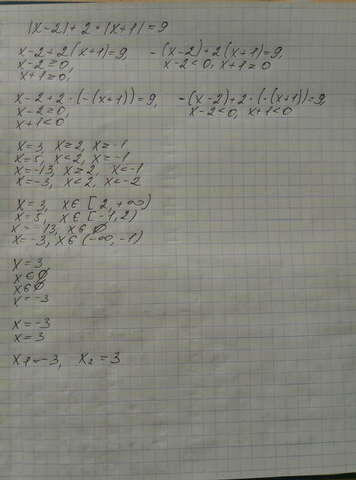 |x-2|+2·|x+1|=9
x-2+2(x+1)=9, -(x-2)+2(x+1)=9,
x-2≥0, x-2<0, x+1≥0
x+1≥0,
x-2+2·(-(x+1))=9, -(x-2)+2·(-(x+1))=9,
x-2≥0, x-2<0, x+1<0
x+1<0
x=3, x≥2, x≥-1
x=5, x<2, x≥-1
x=-13, x≥2, x<-1
x=-3, x<2, x<-2
x=3, x∈[2,+∞)
x=5, x∈[-1,2)
x=-13, x∈∅
x=-3, x∈(-∞,-1)
x=3
x∈∅
x∈∅
x=-3
x=-3
x=3
x1=-3, x2=3